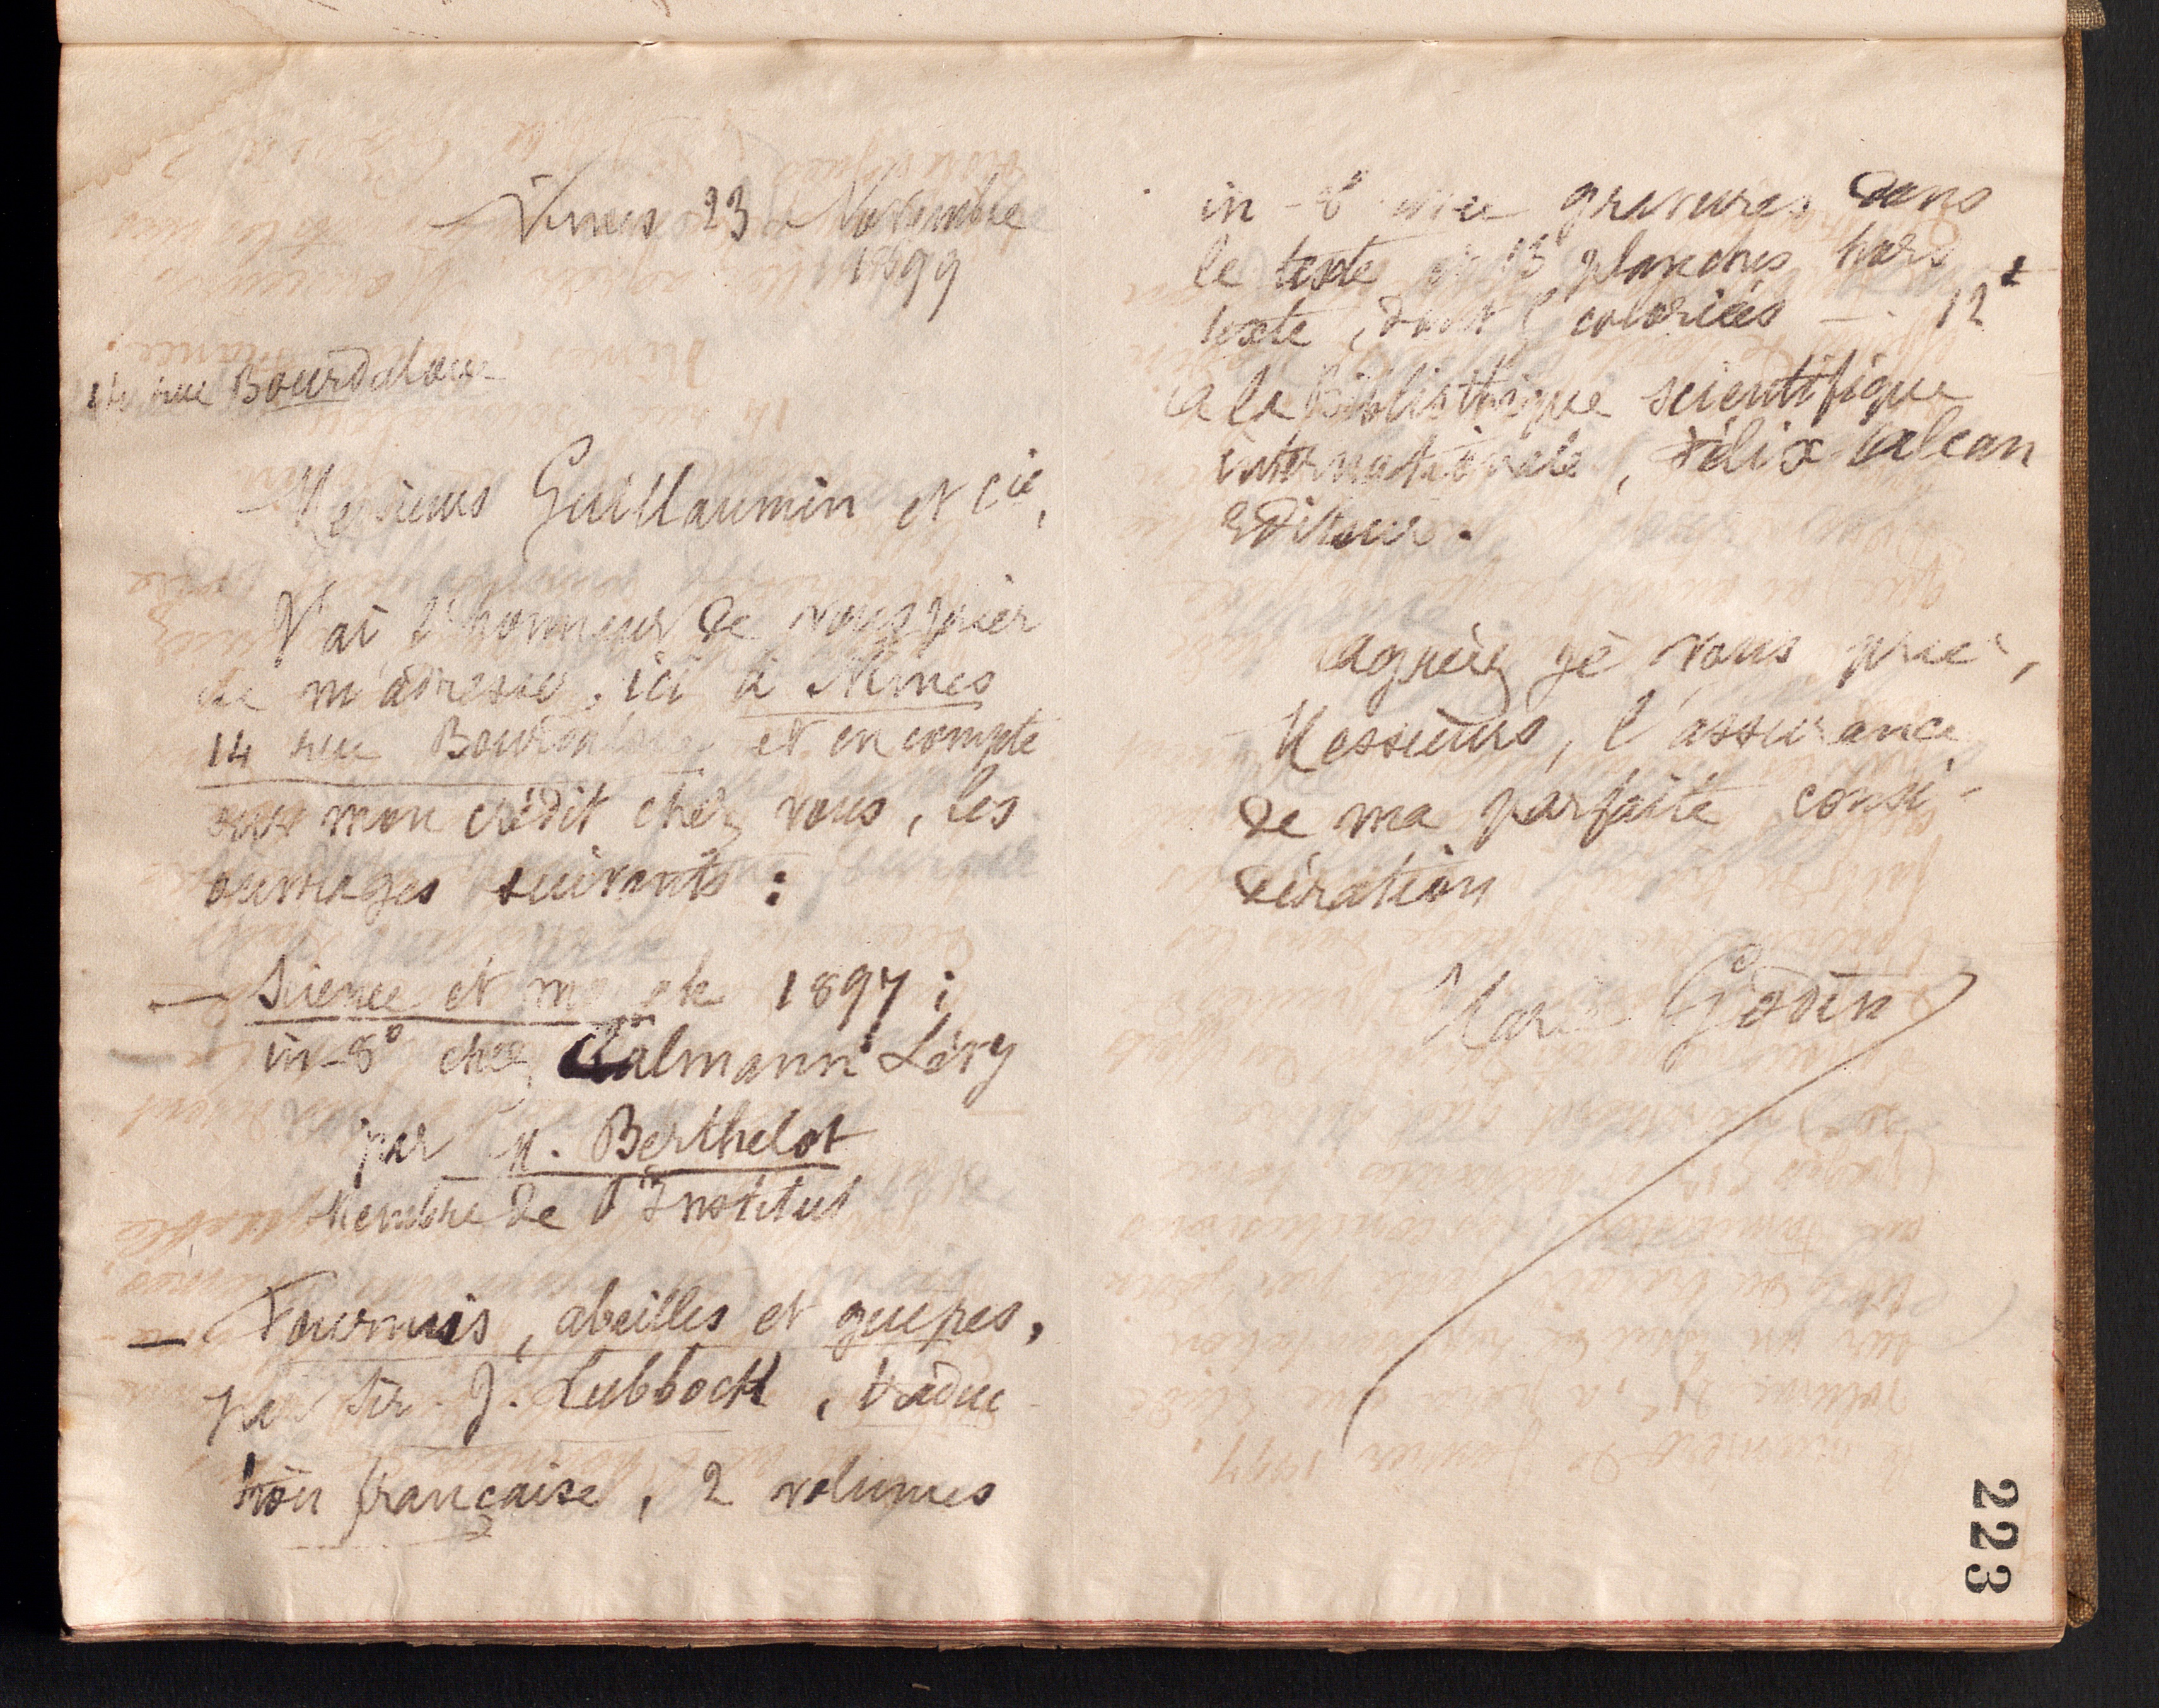 Nimes 23 Novembre
1899
14 rue Bourdaloue
Messieurs Guillaumin et cie,
J'ai l'honneur de vous prier
de m'adresser, ici à Nimes
14 rue Bourdaloue et en compte
sur mon crédit chez vous, les
ouvrages suivants :
— Science et morale 1897 ;
in-8° chez Calmann Lévy
par M. Berthelot
Membre de l'Institut
— Fourmis, abeilles et guepes,
par Sir J. Lubbock, traduc
tion française, 2 volumes
in-8° avec gravures dans
le texte et 13 planches hors
texte, dont coloriées — 12 f
a la Bibliothèque scientifique
internationale, Félix Alcan
Editeur.
Agréez je vous prie,
Messieurs, l'assurance
de ma parfaite consi-
dération
Marie Godin
223